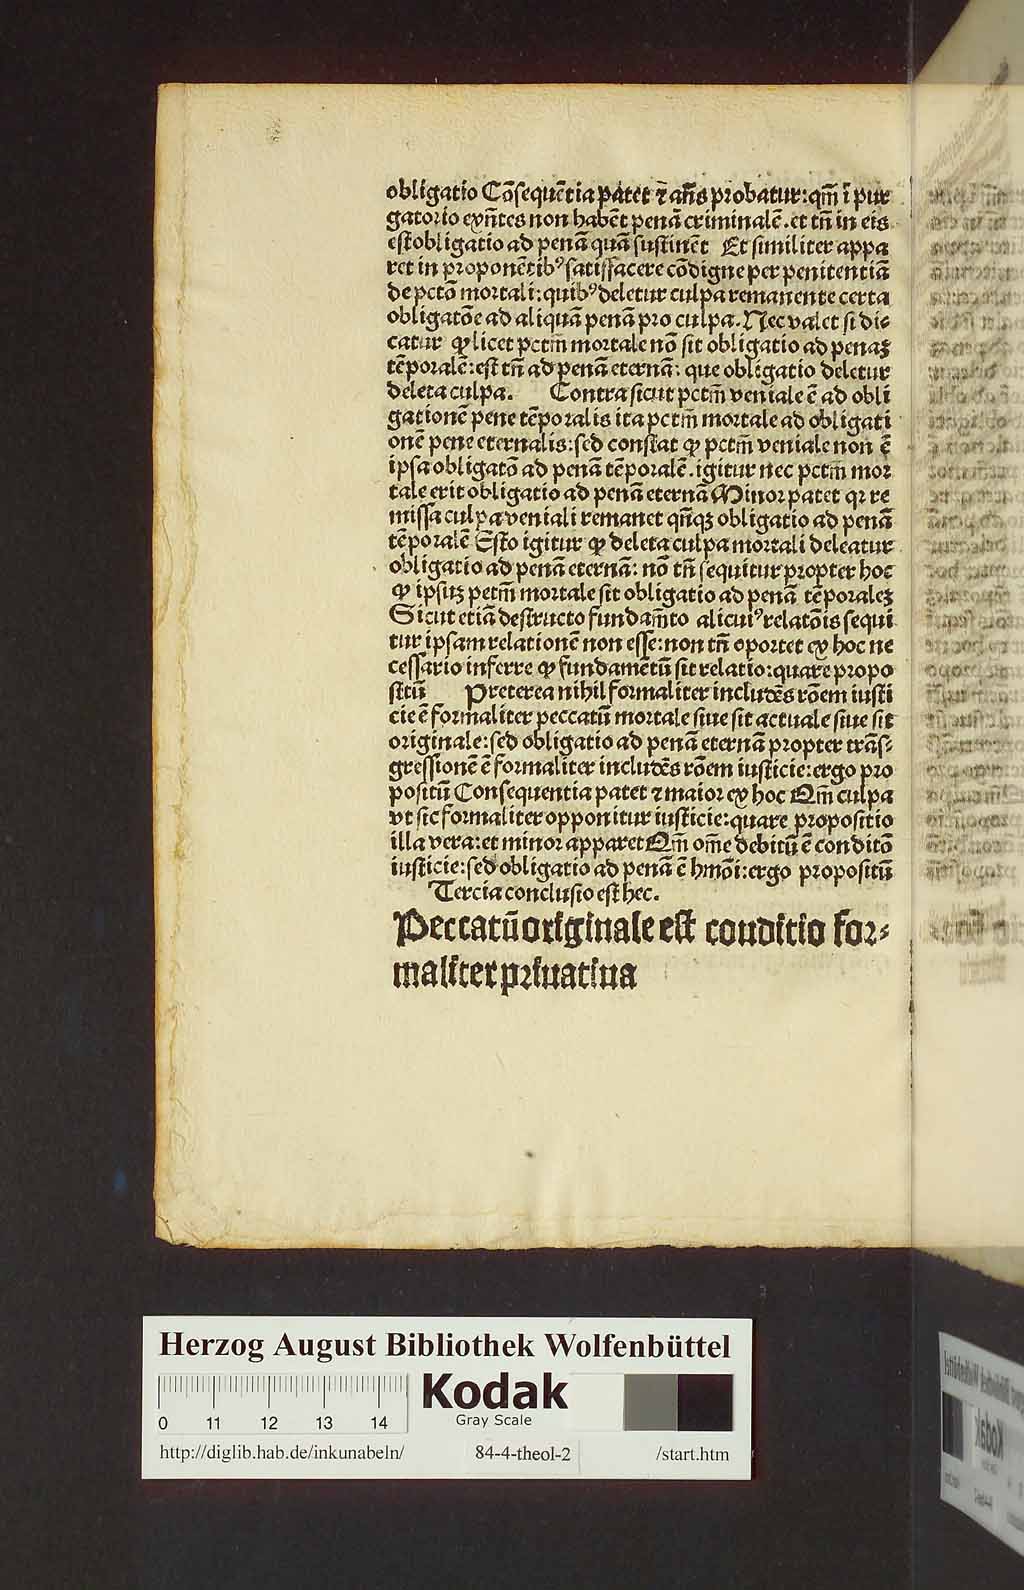 obligatio Cōsequētia patet ⁊ añs probatur: qm̄ ī pur
gatorio exn̄tes non habēt penā criminalē. et tn̄ in eis
est obligatio ad penā quā sustinēt Et similiter appa
ret in proponētibꝰ satisfacere cōdigne per penitentiā
de pctō mortali: quibꝰ deletur culpa remanente certa
obligatōe ad aliquā penā pro culpa. Nec valet si di⸗
catur ꝙ licet pctm̄ mortale nō sit obligatio ad penaꝫ
tēporalē: est tn̄ ad penā eternā: que obligatio deletur
deleta culpa. Contra sicut pctm̄ veniale ē ad obli
gationē pene tēporalis ita pctm̄ mortale ad obligati
onē pene eternalis: sed constat ꝙ pctm̄ veniale non ē
ipsa obligatō ad penā tēporalē. igitur nec pctm̄ mor
tale erit obligatio ad penā eternā Minor patet qꝛ re
missa culpa veniali remanet qn̄qꝫ obligatio ad penā
tēporalē Esto igitur ꝙ deleta culpa mortali deleatur
obligatio ad penā eternā: nō tn̄ sequitur propter hoc
ꝙ ipsuꝫ petm̄ mortale sit obligatio ad penā tēporaleꝫ
Sicut etiā destructo fundam̄to alicuiꝰ relatōis sequi
tur ipsam relationē non esse: non tn̄ oportet ex hoc ne
cessario inferre ꝙ fundamētū sit relatio: quare propo
sitū Preterea nihil formaliter includēs rōem iusti
cie ē formaliter peccatū mortale siue sit actuale siue sit
originale: sed obligatio ad penā eternā propter trās⸗
gressionē ē formaliter includēs rōem iusticie: ergo pro
positū Consequentia patet ⁊ maior ex hoc Qm̄ culpa
vt sic formaliter opponitur iusticie: quare propositio
illa vera: et minor apparet Qm̄ om̄e debitū ē conditō
iusticie: sed obligatio ad penā ē hmōi: ergo propositū
Tercia conclusio est hec.
Peccatū originale est conditio for⸗
maliter priuatiua
Herzog August Bibliothek Wolfenbüttel
0 11 12 13 14
Kodak
Gray Scale
http://diglib.hab.de/inkunabeln/ 84-4-theol-2 /start.htm